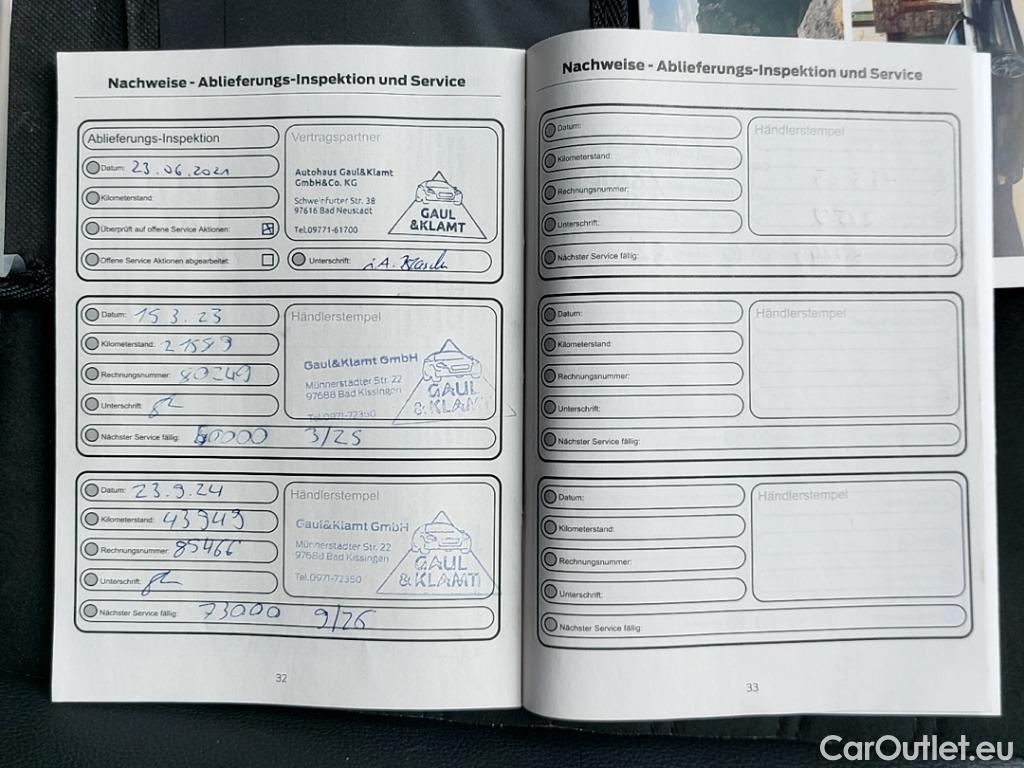 Nachweise - Ablieferungs-Inspektion und Service
Ablieferungs-Inspektion
Datum: 23.06.2021
Kilometerstand:
Überprüft auf offene Service Aktionen:
Offene Service Aktionen abgearbeitet:
Vertragspartner
Autohaus Gaul&Klamt
GmbH&Co. KG
Schweinfurter Str. 38
97616 Bad Neustadt
Tel.09771-61700
GAUL
&KLAMT
Unterschrift: i.A.
Datum: 15.3.23
Kilometerstand: 21599
Rechnungsnummer: 80249
Unterschrift:
Nächster Service fällig: 50000 3/25
Händlerstempel
Gaul&Klamt GmbH
Münnerstädter Str. 22
97688 Bad Kissingen
Tel.0971-72350
GAUL
&KLAMT
Datum: 23.9.24
Kilometerstand: 43949
Rechnungsnummer: 85466
Unterschrift:
Nächster Service fällig: 73000 9/26
Händlerstempel
Gaul&Klamt GmbH
Münnerstädter Str. 22
97688 Bad Kissingen
Tel.0971-72350
GAUL
&KLAMT
32
Nachweise - Ablieferungs-Inspektion und Service
Datum:
Kilometerstand:
Rechnungsnummer:
Unterschrift:
Nächster Service fällig:
Händlerstempel
Datum:
Kilometerstand:
Rechnungsnummer:
Unterschrift:
Nächster Service fällig:
Händlerstempel
Datum:
Kilometerstand:
Rechnungsnummer:
Unterschrift:
Nächster Service fällig:
Händlerstempel
33
CarOutlet.eu